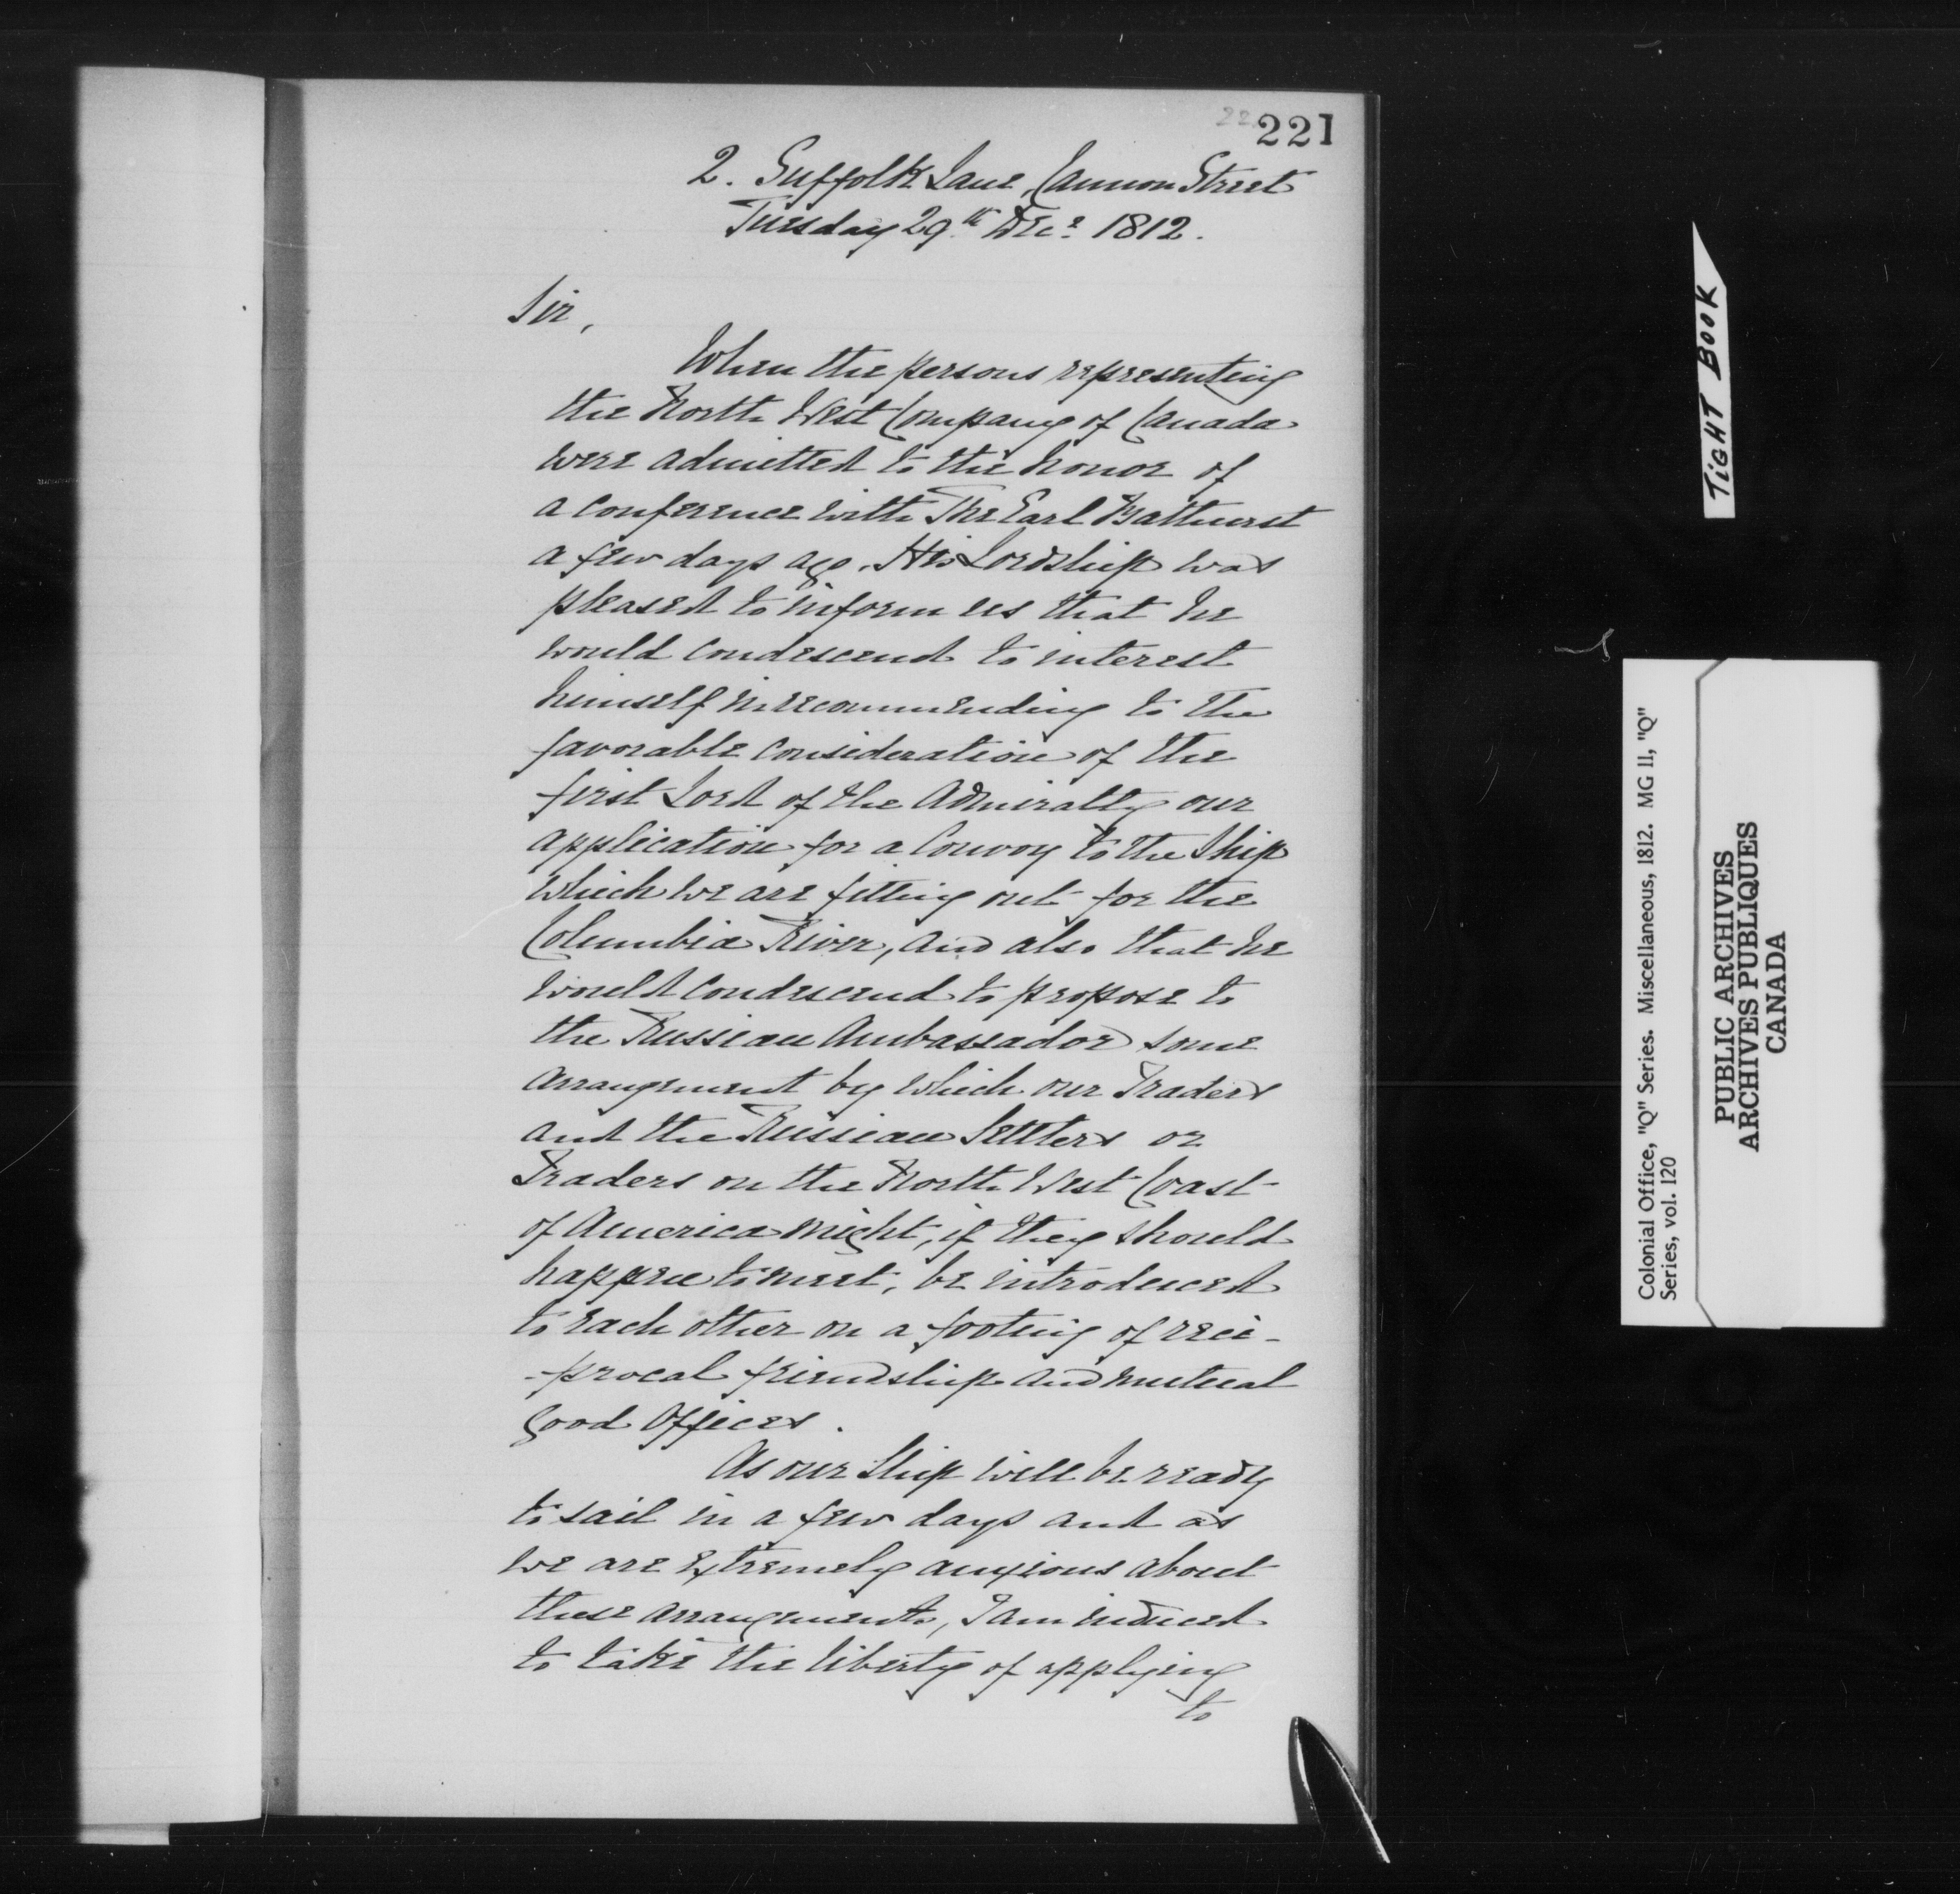 221
2. Suffolk Lane, Cannon Street
Tuesday 29th Decr 1812.
Sir,
When the persons representing
the North West Company of Canada
were admitted to the honor of
a conference with The Earl Bathurst
a few days ago. His Lordship was
pleased to inform us that he
would condescend to interest
himself in recommending to the
favorable consideration of the
first Lord of the Admiralty our
application for a Convoy to the Ship
which we are fitting out for the
Columbia River, and also that he
would condescend to propose to
the Russian Ambassador some
arrangement by which our Traders
and the Russian Settlers or
Traders on the North West Coast
of America might, if they should
happen to meet, be introduced
to each other on a footing of reci-
-procal friendship and mutual
good offices.
As our Ship will be ready
to sail in a few days and as
we are extremely anxious about
these arrangements, I am induced
to take the liberty of applying
to
TIGHT BOOK
Colonial Office, "Q" Series. Miscellaneous, 1812. MG 11, "Q"
Series, vol. 120
PUBLIC ARCHIVES
ARCHIVES PUBLIQUES
CANADA